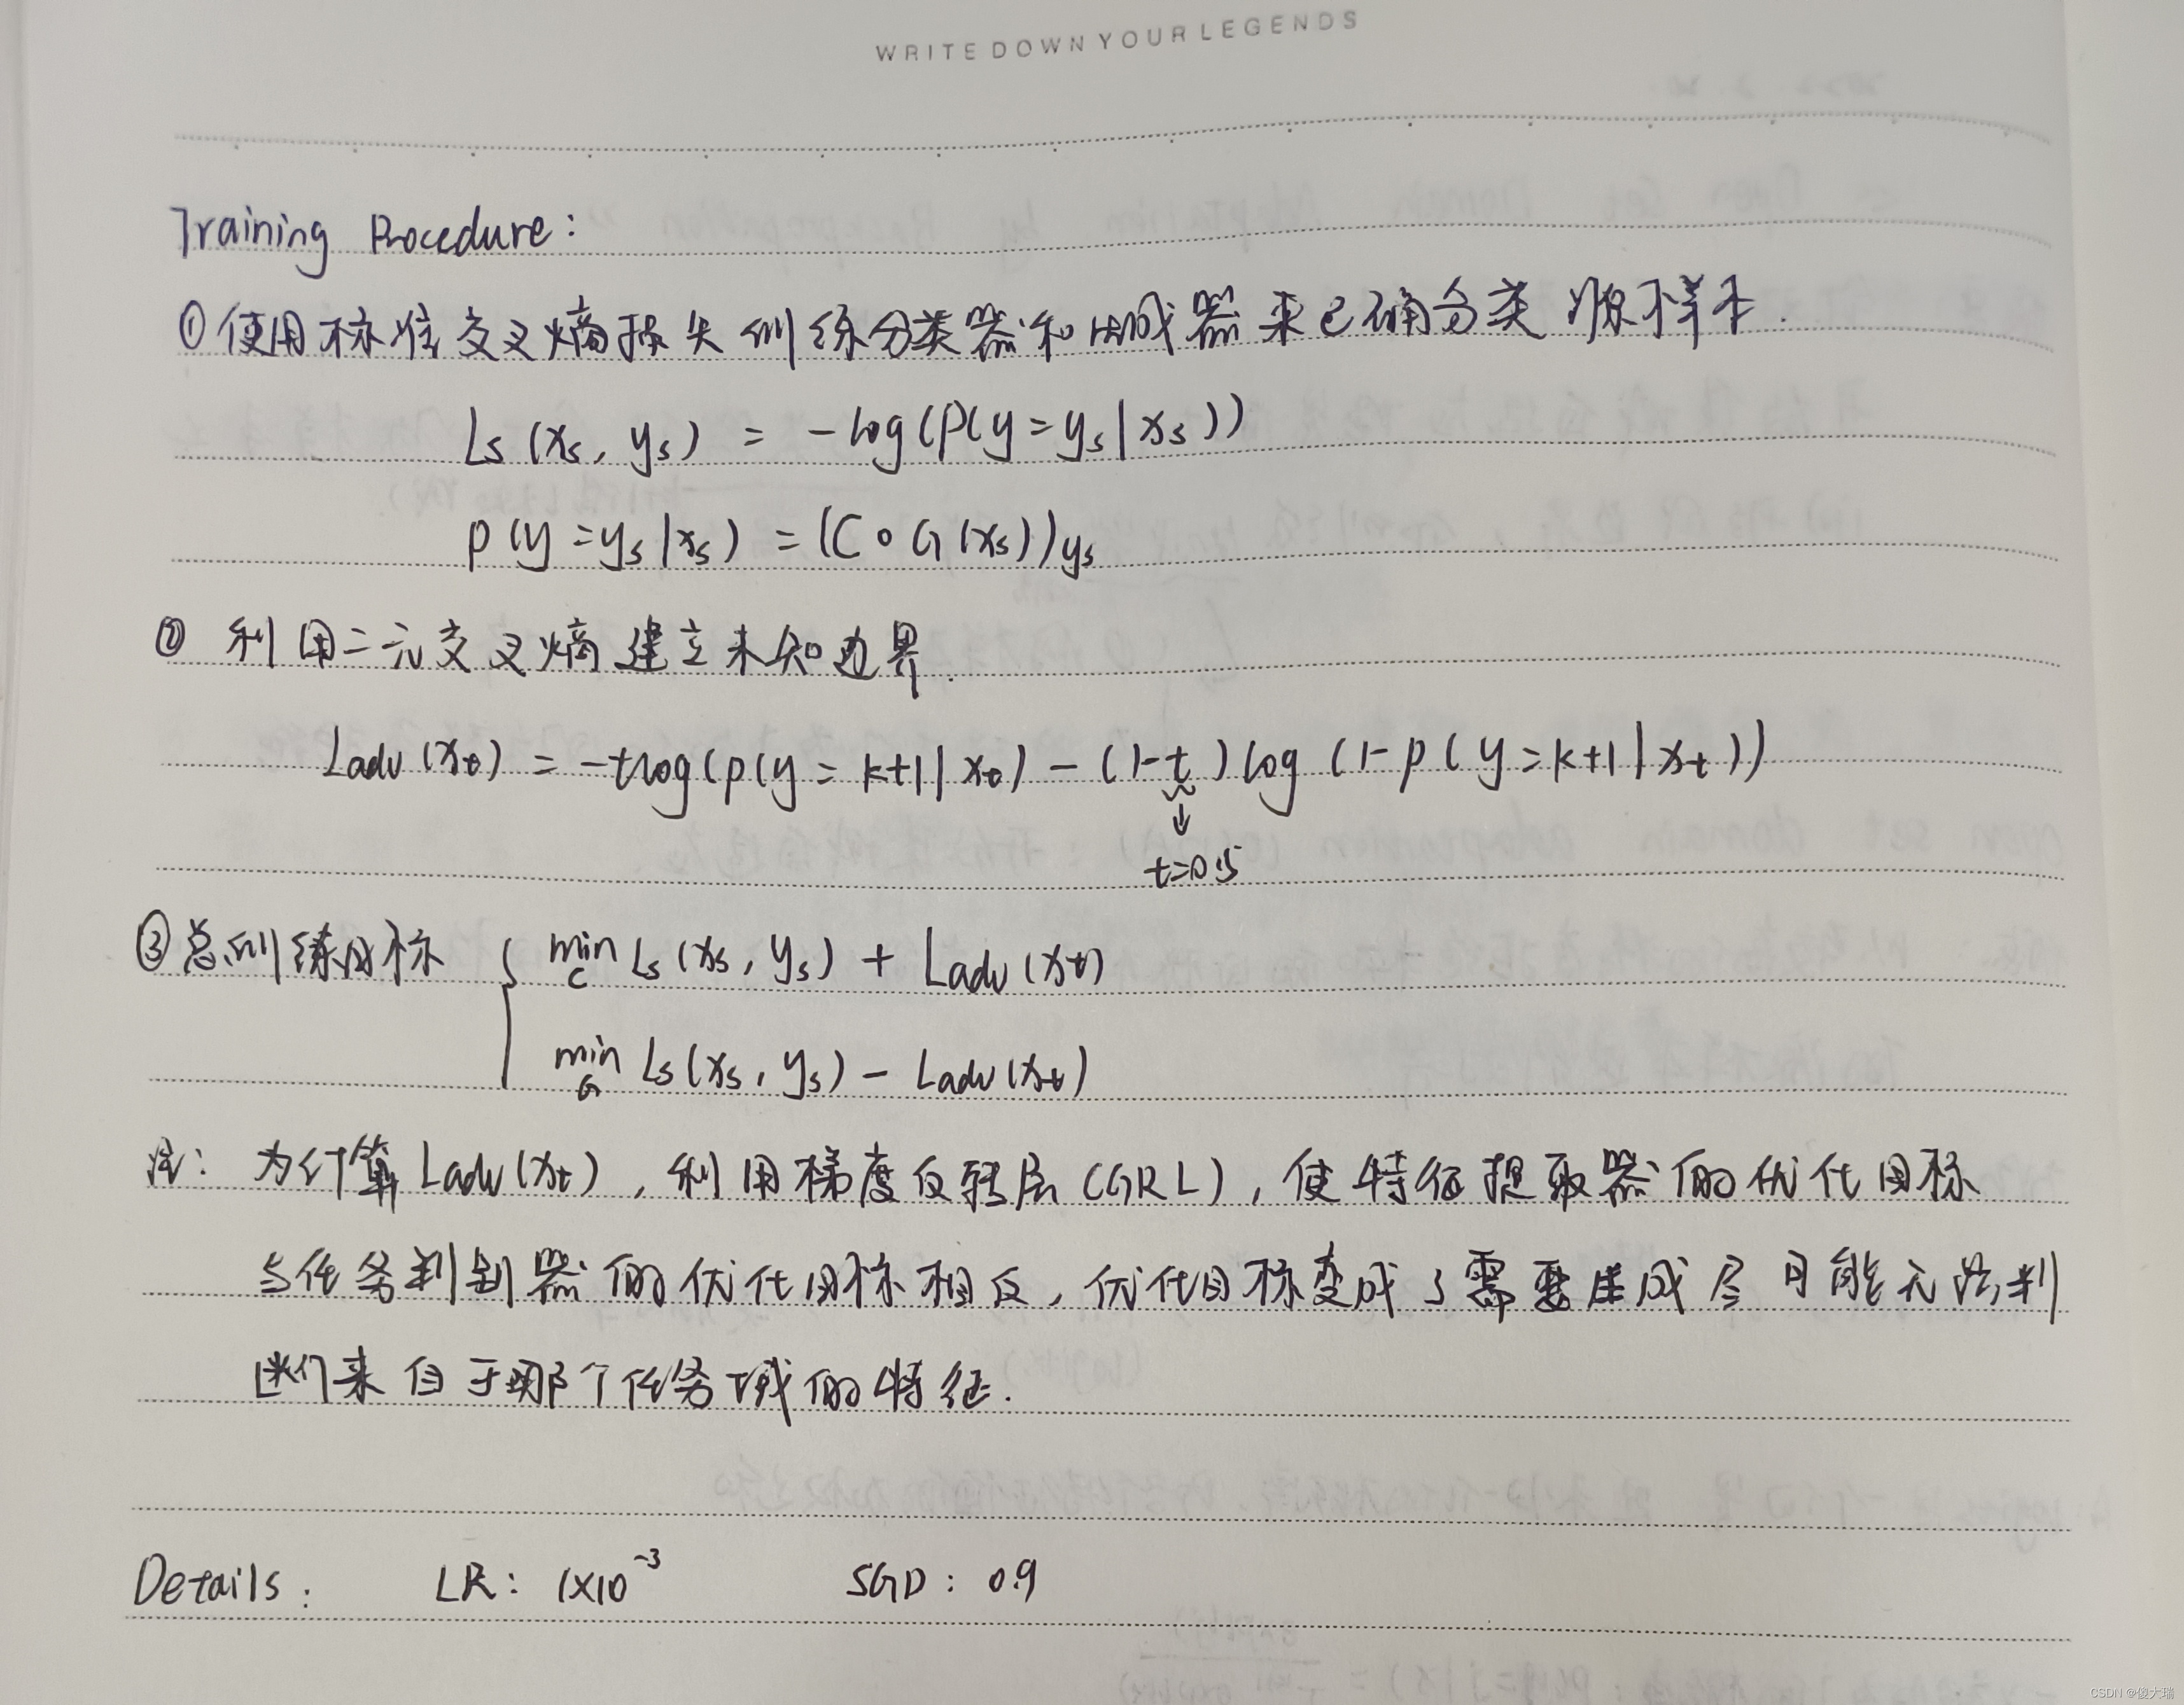 WRITE DOWN YOUR LEGENDS
Training Procedure:
①使用标准交叉熵损失训练分类器和生成器来正确分类源样本.
Ls(xs, ys) = -log(p(y=ys|xs))
p(y=ys|xs) = (C∘G(xs))ys
② 利用二元交叉熵建立未知边界.
Ladv(xt) = -tlog(p(y=k+1|xt) - (1-t)log(1-p(y=k+1|xt))
↓
t=0.5
③总训练目标 { min C Ls(xs, ys) + Ladv(xt)
min G Ls(xs, ys) - Ladv(xt)
注: 为计算Ladv(xt), 利用梯度反转层(GRL), 使特征提取器的优化目标
与任务判别器的优化目标相反, 优化目标变成了需要生成尽可能无法判
来自于哪个任务域的特征.
Details: LR: 1×10⁻³ SGD: 0.9
CSDN @傻大瑞